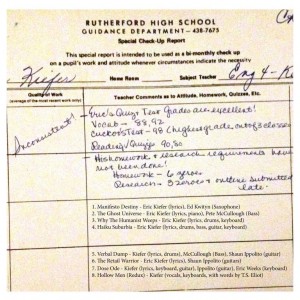 RUTHERFORD HIGH SCHOOL
GUIDANCE DEPARTMENT — 438-7675
Special Check-Up Report
This special report is intended to be used as a bi-monthly check up
on a pupil's work and attitude whenever circumstances indicate the necessity
Kiefer
Eng 4-K
Home Room
Subject Teacher
Quality of Work
(average of the most recent work only)
Teacher Comments as to Attitude, Homework, Quizzes, Etc.
Inconsistent!
Eric's Quiz, Test Grades are excellent!
Vocab - 88, 92
Cuckoo's Test - 98 (highest grade out of 3 classes)
Reading Quizzes 90, 80
His homework & research requirements have
not been done!
Homework - 6 zeroes
Research - 2 zeroes & outline submitted
late.
1. Manifesto Destiny - Eric Kiefer (lyrics), Ed Kwityn (Saxophone)
2. The Ghost Universe - Eric Kiefer (lyrics, piano), Pete McCullough (Bass)
3. Why The Humanist Weeps - Eric Kiefer (lyrics, drums, bass, guitar)
4. Haiku Suburbia - Eric Kiefer (lyrics, drums, bass, guitar, keyboard)
5. Verbal Dump - Kiefer (lyrics), McCullough (Bass), Shaun Ippolito (guitar)
6. The Retail Warrior - Eric Kiefer (lyrics), Shaun Ippolito (guitars)
7. Dose Ode - Kiefer (lyrics, keyboard, guitar), Ippolito (guitar), Eric Weeks (keyboard)
8. Hollow Man (Redux) - Kiefer (vocals, keyboards, with words by T.S. Eliot)